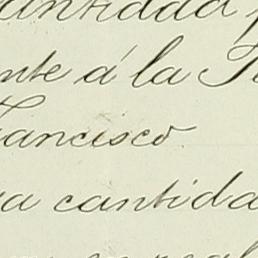 antidad
nte á la
Francisco
a cantida